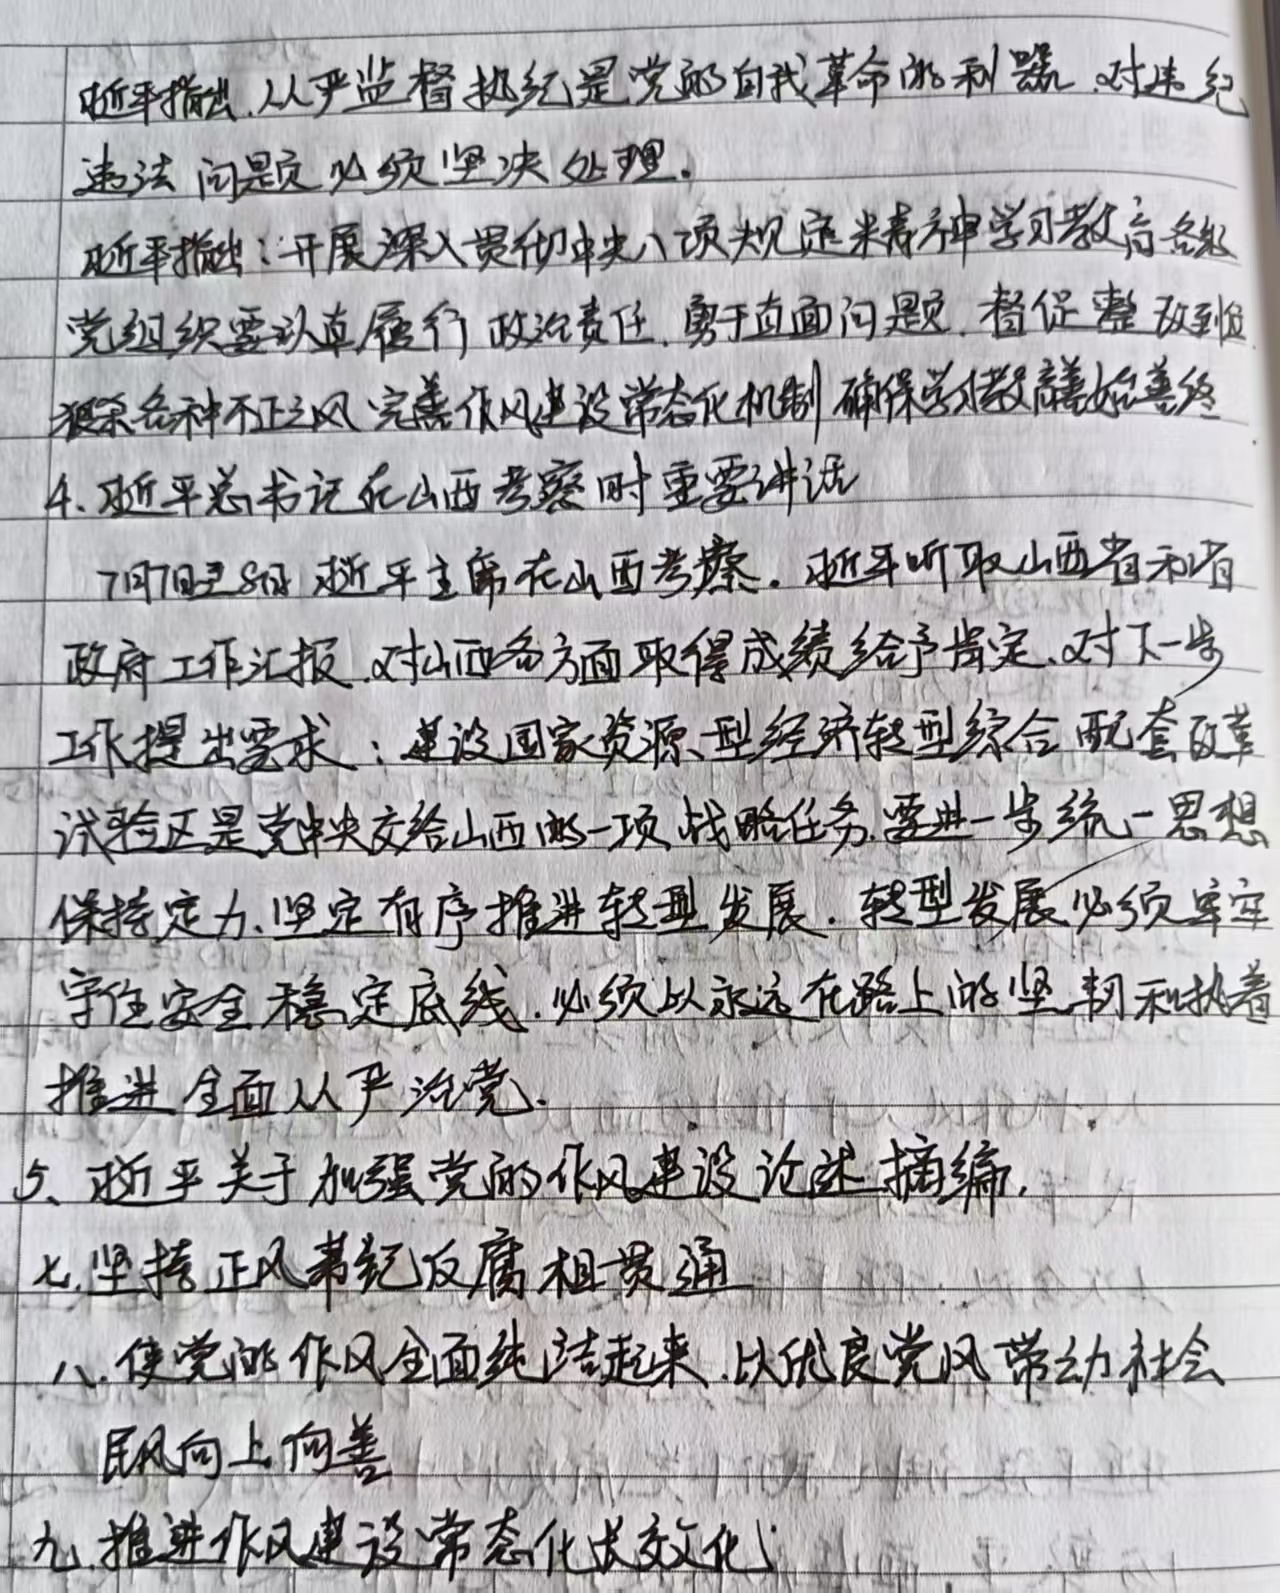 近平指出,从严监督执纪是党的自我革命的利器,对违纪
违法问题必须坚决处理.
近平指出:开展深入贯彻中央八项规定精神学习教育各级
党组织要认真履行政治责任,勇于直面问题,督促整改到位
狠杀各种不正之风完善作风建设常态化机制确保学习教育善始善终
4、近平总书记在山西考察时重要讲话
7月7日至8日近平主席在山西考察.近平听取山西省和省
政府工作汇报,对山西各方面取得成绩给予肯定,对下一步
工作提出要求:建设国家资源型经济转型综合配套改革
试验区是党中央交给山西的一项战略任务,要进一步统一思想
保持定力、坚定有序推进转型发展.转型发展必须牢牢
守住安全稳定底线,必须以永远在路上的坚韧和执着
推进全面从严治党.
5、近平关于加强党的作风建设论述摘编,
七、坚持正风肃纪反腐相贯通
八、使党的作风全面纯洁起来,以优良党风带动社会
民风向上向善
九、推进作风建设常态化长效化